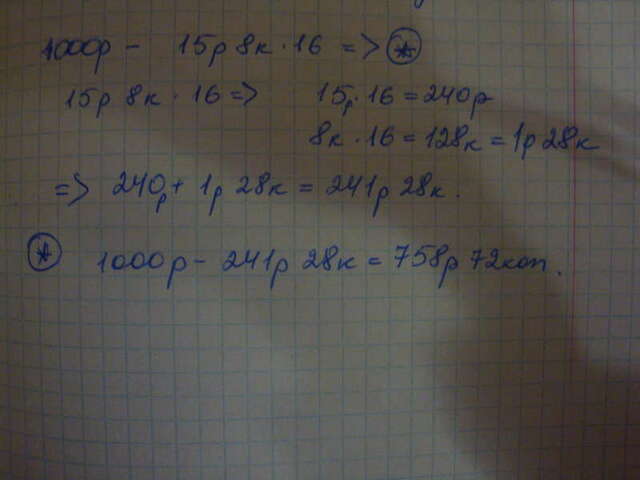 1000р - 15р 8к · 16 => *
15р 8к · 16 => 15р · 16 = 240р
8к · 16 = 128к = 1р 28к
=> 240р + 1р 28к = 241р 28к.
* 1000р - 241р 28к = 758р 72коп.